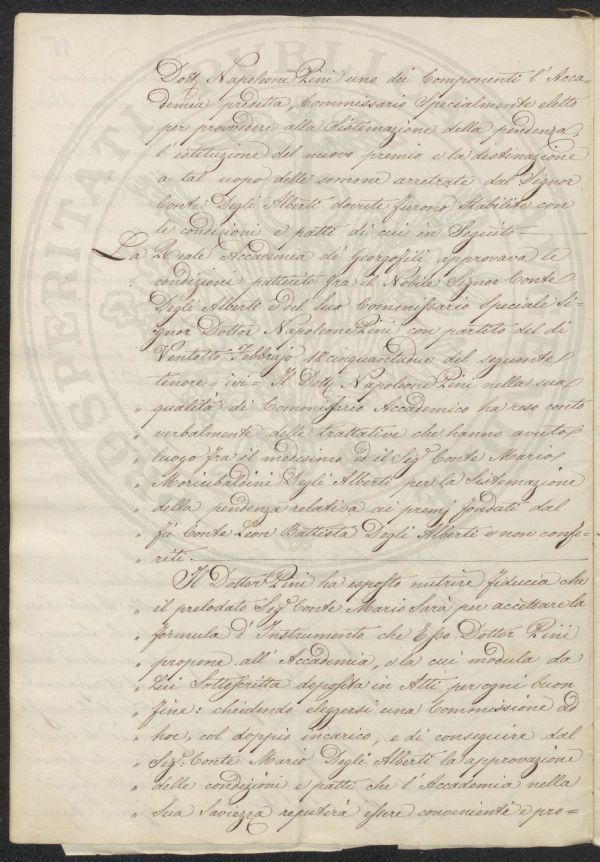 Dott. Napoleone Pini uno dei Componenti l'Acca=
demia predetta, Commissario Specialmente eletto
per provvedere alla Sistemazione della pendenza,
l'istituzione del nuovo premio e la destinazione
a tal uopo delle somme arretrate dal Signor
Conte Degli Alberti dovute furono Stabilite con
le condizioni e patti di cui in Seguito=
La Reale Accademia de' Georgofili approvava le
condizioni pattuite fra il Nobile Signor Conte
Degli Alberti e del Suo Commissario Speciale Si=
gnor Dottor Napoleone Pini con partito del dì
Ventotto Febbrajo 18cinquantadue del seguente
tenore = ivi = Il Dott. Napoleone Pini nella sua
" qualità di Commissario Accademico ha reso conto
" verbalmente delle trattative che hanno avuto
" luogo fra il medesimo ed il Sig.r Conte Mario
" Moriubaldini Degli Alberti per la Sistemazione
" della pendenza relativa ai premj fondati dal
" fù Conte Leon Battista Degli Alberti e non confe=
" riti.
" Il Dottor Pini ha esposto nutrire fiducia che
" il prelodato Sig.r Conte Mario Sarà per accettare la
" formula d'Instrumento che Esso Dottor Pini
" propone all'Accademia, e la cui modula da
" Lui Sottoscritta deposita in Atti per ogni buon
" fine: chiedendo eleggersi una Commissione ad
" hoc, col doppio incarico, e di conseguire dal
" Sig.r Conte Mario Degli Alberti la approvazione
" delle condizioni e patti che l'Accademia nella
" Sua Saviezza reputerà essere convenienti e pro=